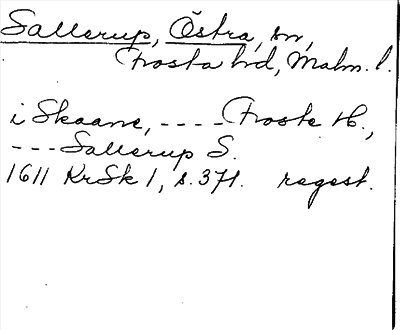 Sallerup, Östra, sn,
Frosta hd, Malm. l.
i Skaane, ---- Froste H.,
--- Sallerup S.
1611 KrSk 1, s. 371. regest.